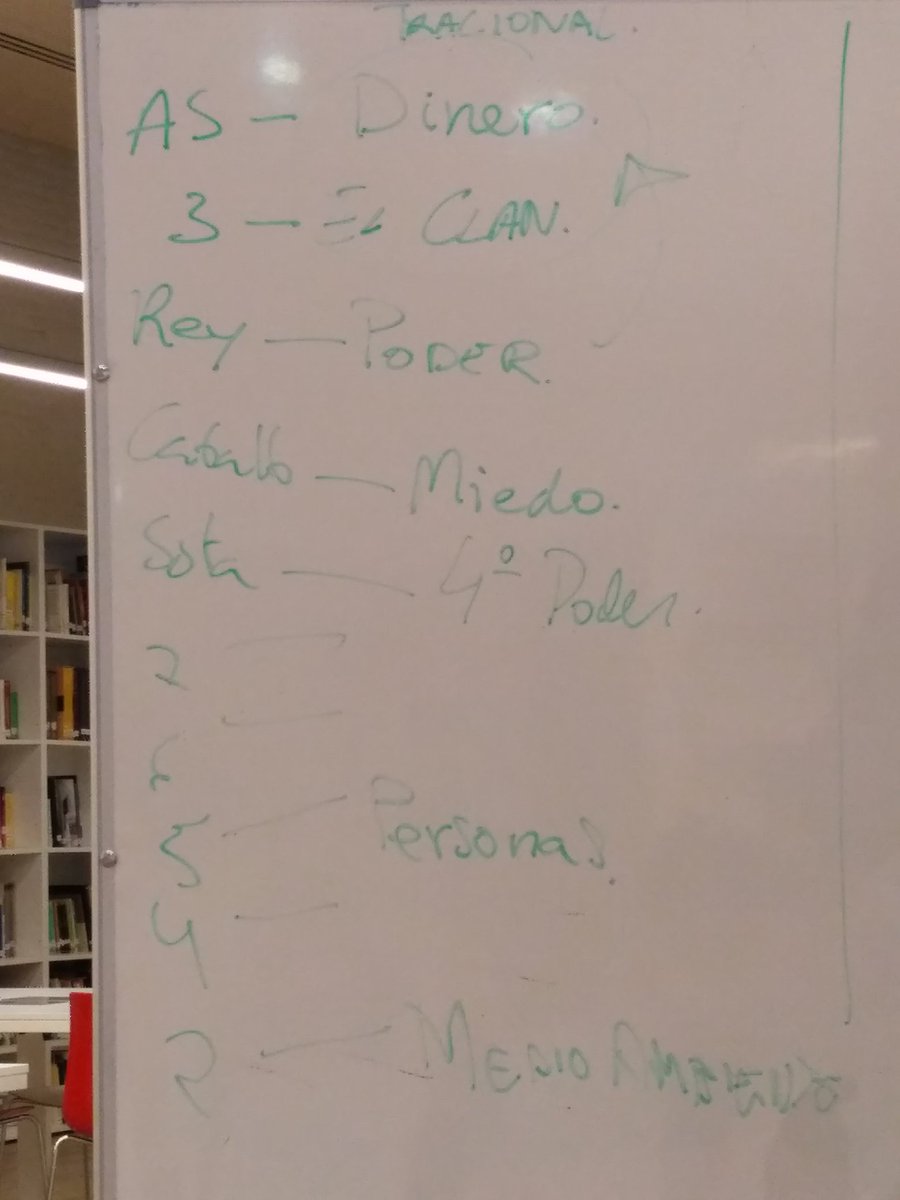 TRACIONAL.
AS - Dinero.
3 - EL CLAN.
Rey - PODER.
Caballo - Miedo.
Sota - 4º Poder.
7 -
6 -
5 - Personas.
4 -
2 - MEDIO AMBIENTE